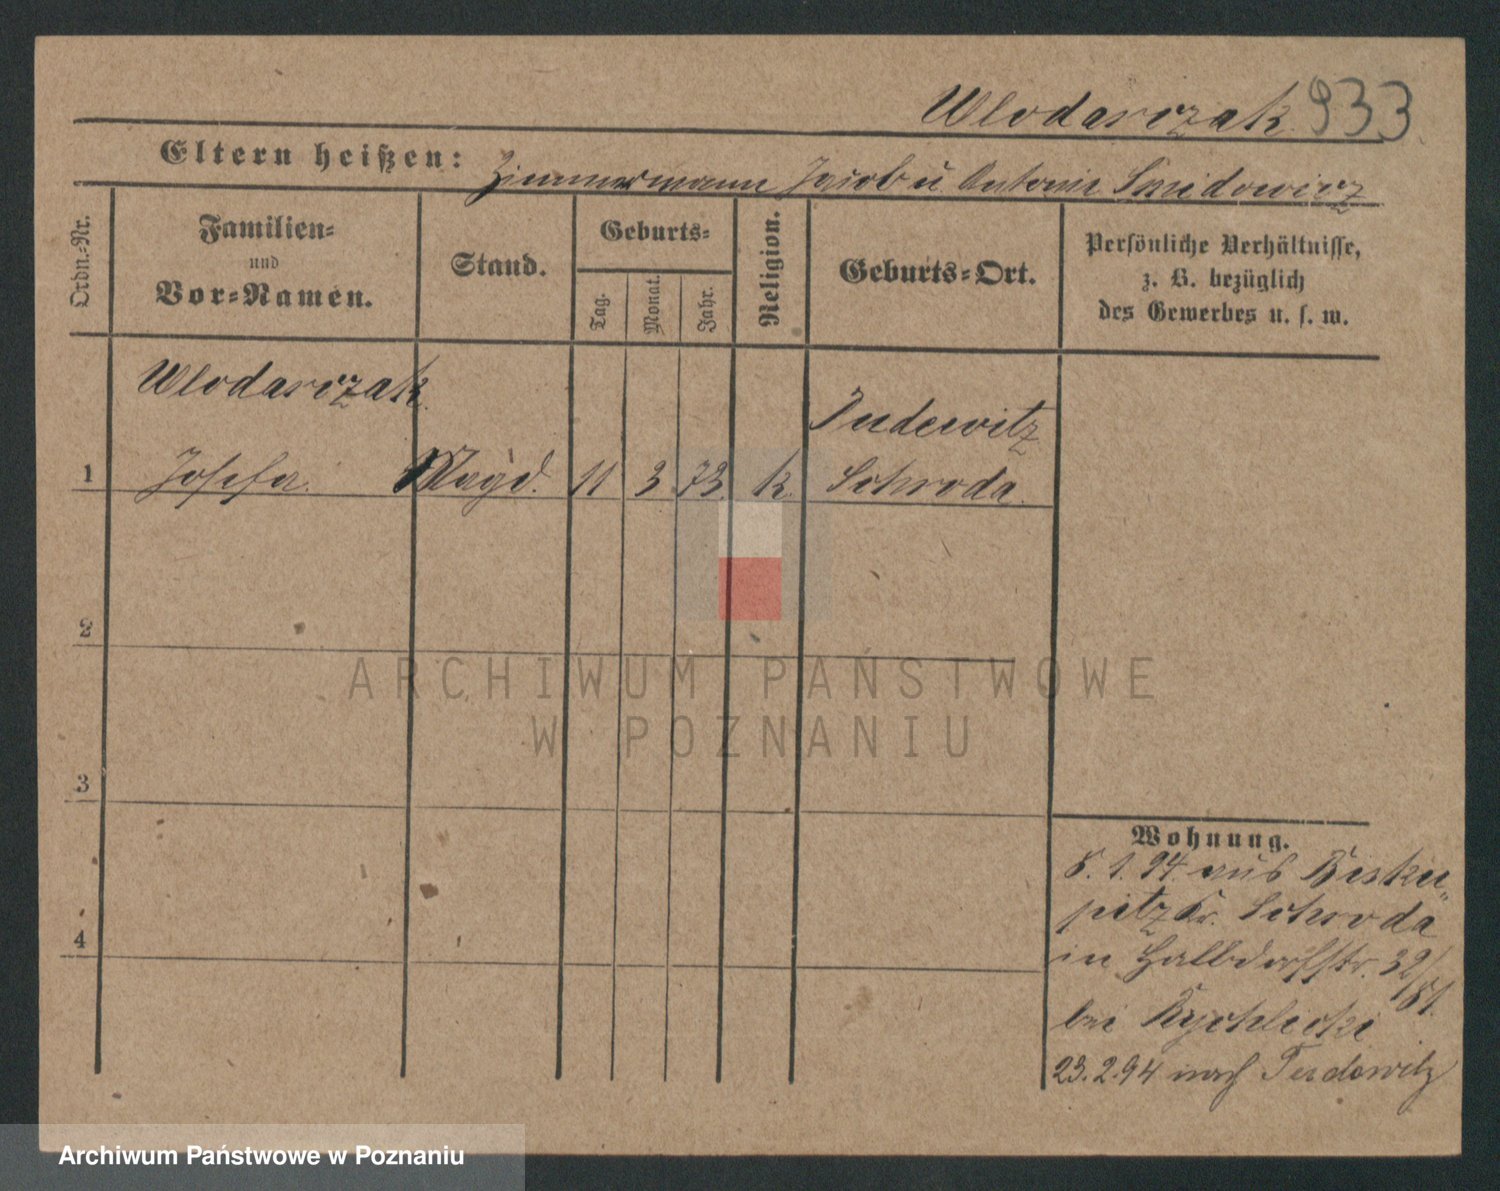 Wlodarczak 933
Eltern heißen: Zimmermann Jacob u Antonie Smidowicz
Ordn.-Nr.
Familien-
und
Vor-Namen.
Stand.
Geburts-
Tag.
Monat.
Jahr.
Religion.
Geburts-Ort.
Persönliche Verhältnisse,
z. B. bezüglich
des Gewerbes u. s. w.
Wlodarczak
Pudewitz
1 Josefa. Magd. 11 3 73 k. Schroda
2
3
4
Wohnung.
8. 1. 94. aus Bisku-
pitz Kr. Schroda
in Halbdorfstr. 32/
bei Rychlicki
23.2.94 nach
ARCHIWUM PAŃSTWOWE
W POZNANIU
Archiwum Państwowe w Poznaniu